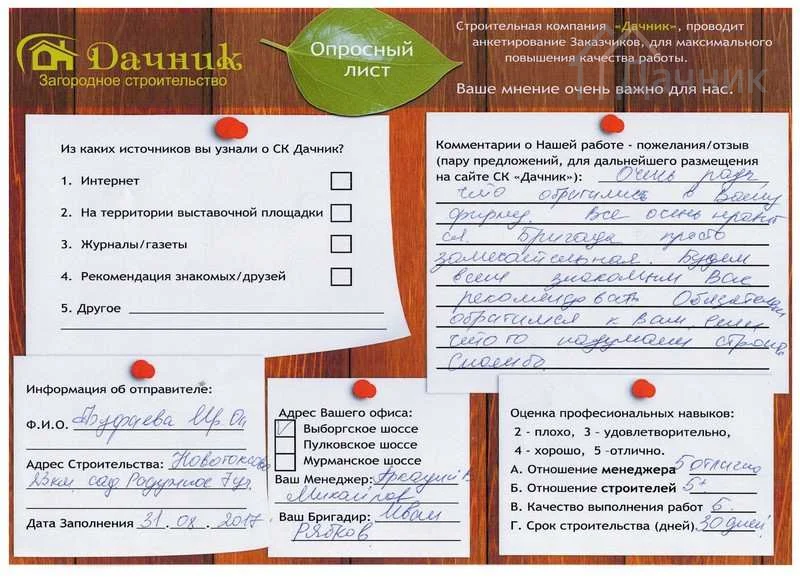 Дачник
Загородное строительство
Опросный
лист
Строительная компания «Дачник», проводит
анкетирование Заказчиков, для максимального
повышения качества работы.
Ваше мнение очень важно для нас.
Дачник
Из каких источников вы узнали о СК Дачник?
1. Интернет
2. На территории выставочной площадки
3. Журналы/газеты
4. Рекомендация знакомых/друзей
5. Другое
Комментарии о Нашей работе - пожелания/отзыв
(пару предложений, для дальнейшего размещения
на сайте СК «Дачник»): Очень рады,
что обратились в Вашу
фирму. Все очень нравит
ся. Бригада просто
замечательная. Будем
всем знакомым Вас
рекомендовать Обязательно
обратимся к Вам, если
что то надумаем строить
Спасибо.
Информация об отправителе:
Ф.И.О.
Адрес Строительства:
23км. сад Радужное
Дата Заполнения 31.08.2017
Адрес Вашего офиса:
Выборгское шоссе
Пулковское шоссе
Мурманское шоссе
Ваш Менеджер: Аркадий
Ваш Бригадир: Иван
Рябков
Оценка професиональных навыков:
2 - плохо, 3 - удовлетворительно,
4 - хорошо, 5 -отлично.
А. Отношение менеджера 5 отлично
Б. Отношение строителей 5+
В. Качество выполнения работ
Г. Срок строительства (дней) 30 дней